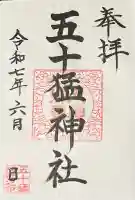 奉拝
五十猛神社
令和七年 六月 日